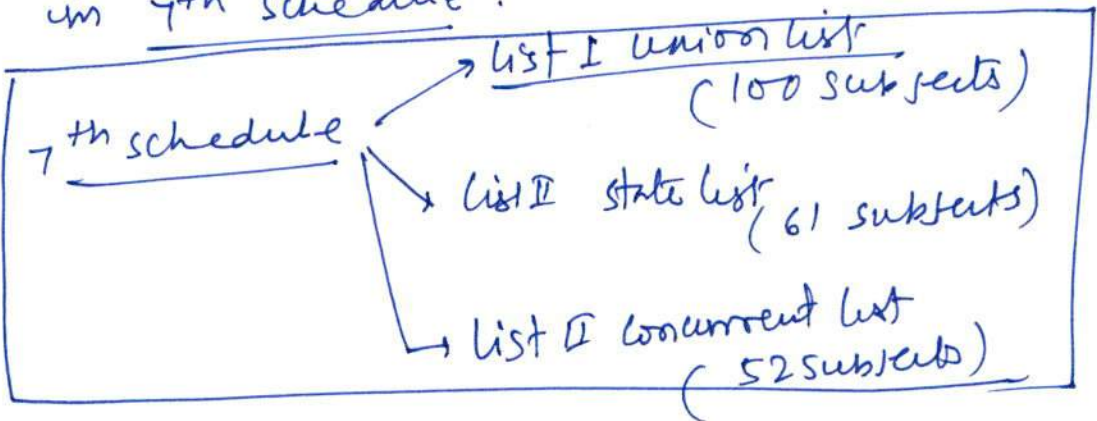 in 7th schedule.
7th schedule
List I union list
(100 subjects)
List II state list
(61 subjects)
List II concurrent list
(52 subjects)